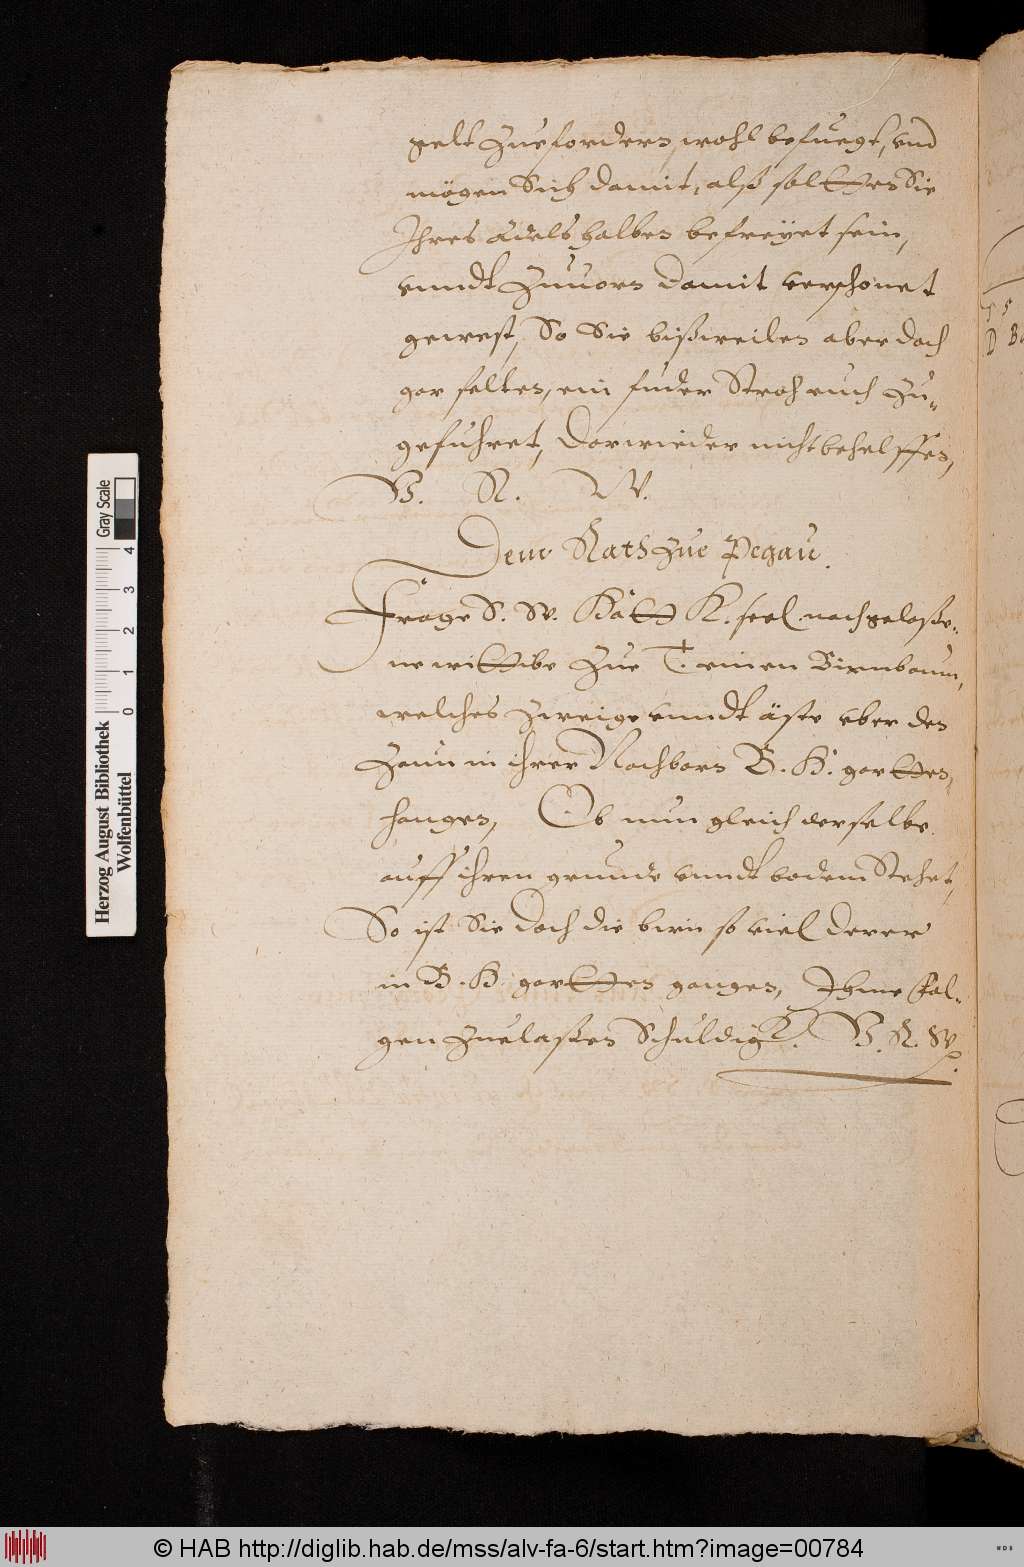 gelt Zuefordern, wohl befuegt, vnd
mögen Sich damit, alß solten Sie
Ihres Adels halben befreÿet sein,
vnndt Zuuorn damit verschonet
gewest, So Sie bißweilen aber doch
gar selten, ein fuder Stroh euch Zu-
gefuhret, darwieder nicht behelffen,
V. R. W.
Dem Rath Zue Pegau.
Frage S. W. K. seel. nachgelaße-
ne wittibe Zue T. einen Birnbaum,
welches Zweige vnndt äste vber den
Zaun in ihrer Nachbars B. H. garten,
hangen, Ob nun gleich derselbe
auff ihren grunde vnndt bodem Stehet,
So ist Sie doch die birn so viel derer
in B. H. garten hangen, Ihme fol-
gen Zuelaßen Schuldigk. V. R. W.
Gray Scale
0 1 2 3 4
Herzog August Bibliothek
Wolfenbüttel
© HAB http://diglib.hab.de/mss/alv-fa-6/start.htm?image=00784